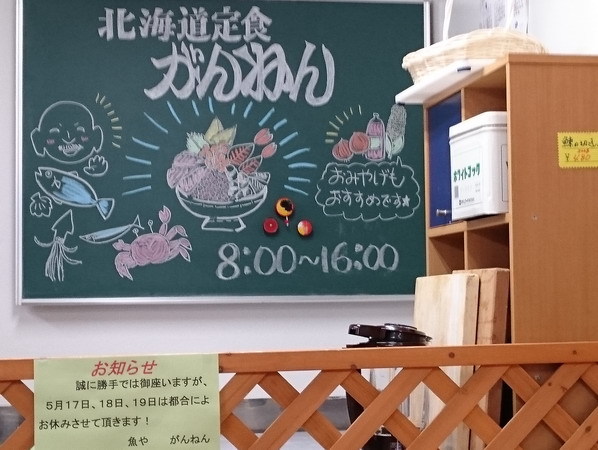 北海道定食
がんねん
おみやげも
おすすめです
8:00~16:00
ホワイトエック
¥680
お知らせ
誠に勝手では御座いますが、
5月17日、18日、19日は都合によ
お休みさせて頂きます！
魚や　がんねん